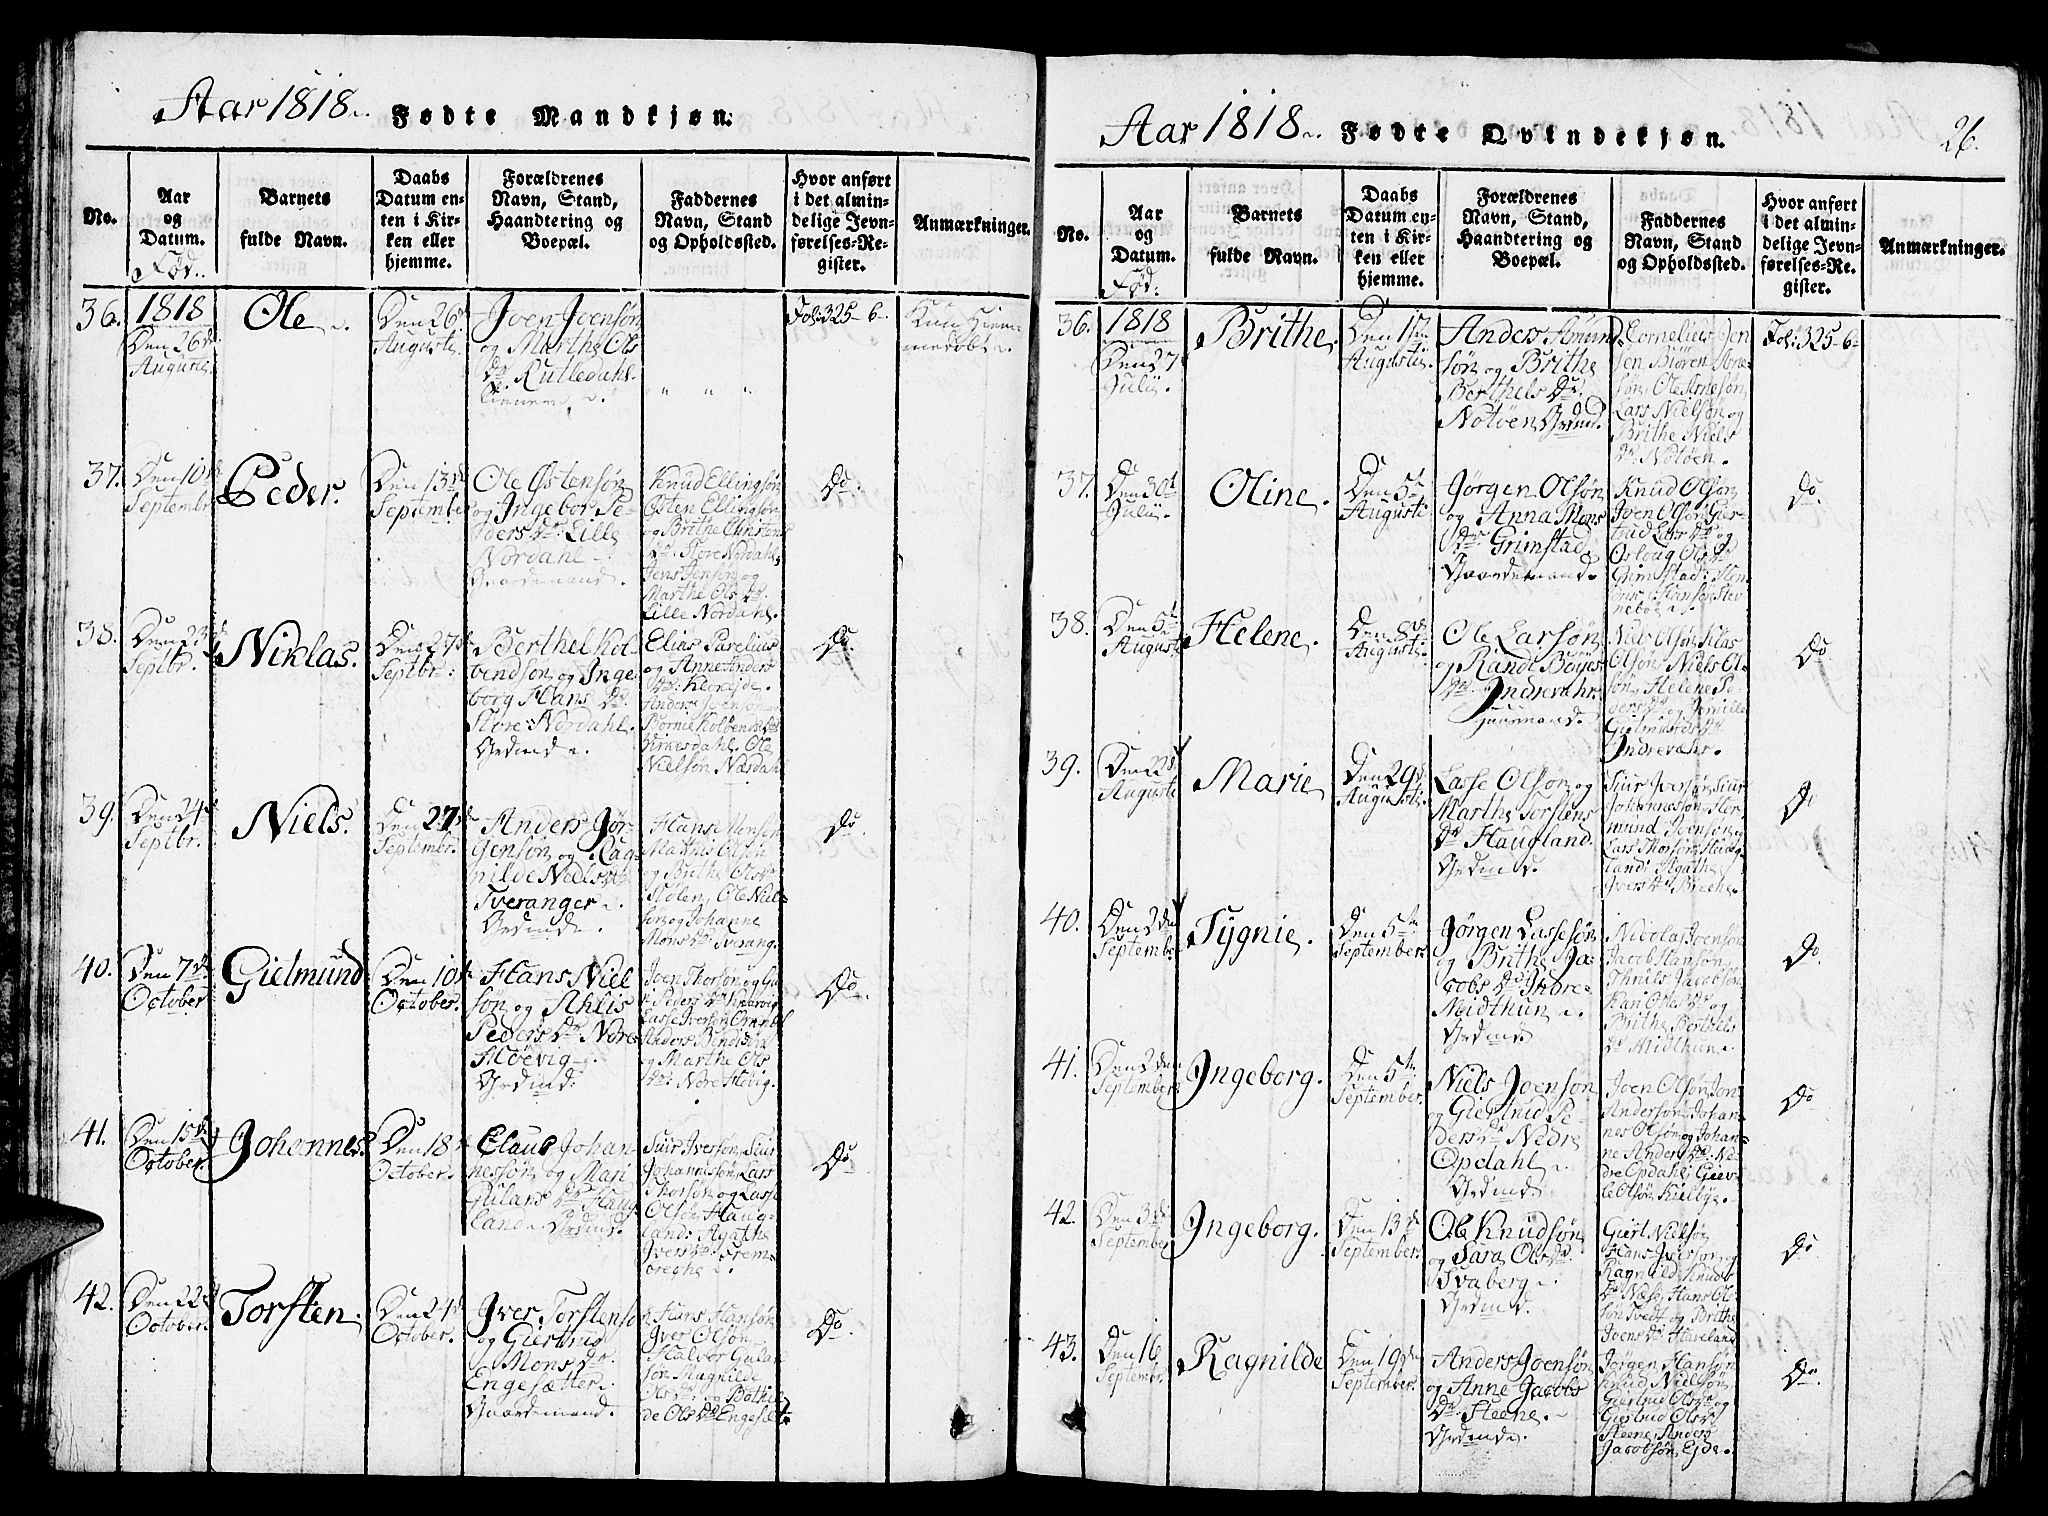 Aar 1818. Fødte Mandkjøn.
No.
Aar
og
Datum.
Fød.
Barnets
fulde Navn.
Daabs
Datum en-
ten i Kir-
ken eller
hjemme.
Forældrenes
Navn, Stand,
Haandtering og
Boepæl.
Faddernes
Navn, Stand
og Opholdssted.
Hvor anført
i det almin-
delige Jevn-
førelses-Re-
gister.
Anmærkninger.
36.
1818
Den 26de
Augusti.
Ole
Den 26de
Augusti.
Joen Joensøn
og Marthe Ols
Dr Rutledahl.
Fol: 325-6-
Kun Hiem-
medøbt
37.
Den 10de
Septembr
Peder.
Den 13de
September
Ole Østensøn
og Ingebor Pe-
ders Dr: Lille
Nordahl
Gaardemand.
Knud Ellingsøn
Østen Ellingsøn
og Brithe Christens
Dr: Store Nordahl,
Jens Jensøn og
Marthe Ols Dr
Lille Nordahl.
Do.
38.
Den 23de
Septbr.
Niklas.
Den 27de
Septbr:
Berthel Kol-
bendsøn og Inge-
borg Hans Dr
Store Nordahl.
Grdmd
Elias Parelius
og Anne Anders
Dr: Kloreide.
Anders Jvensøn
Birkesdahl. Ole
Nielsøn Nordahl
Do.
39.
Den 24de
Septbr.
Niels.
Den 27de
Septembr.
Anders Jør-
gensøn og Rag-
nilde Niels Dr
Tveranger
Grdmd.
Hans Monsøn
Mathis Olsøn
og Brithe Ols Dr
Stølen, Ole Niel-
søn og Johanne
Mons Dr: Tverang.
Do
40.
Den 7de
October
Gielmund
Den 10de
October.
Hans Niel
søn og Ahlis
Peders Dr Nore
Høevig
Grdmd:
Joen Thorsøn og
Peders Dr
Lasse Iversøn
Anders Bendixsøn
og Marthe Ols
Dr: Nore Høvig.
Do.
41.
Den 15de
October.
Johannes.
Den 18de
October.
Claus Johan-
nessøn og Mari
Dr Haug-
land. Grdmd.
Siur Iversøn, Siur
Johannessøn, Lars
Thorsøn og Lasse
Olsøn Haug-
land: Agathe
Ivers Dr Brem-
Do
42.
Den 22de
October.
Torsten.
Den 24de
October.
Iver Torstensø
n og Gierthrud
Mons Dr.
Engesætter
Gaardemand.
Hans Hansøn
Iver Olsøn
Halvor
søn Magnilde
Ols Dr: og Bothil-
de Ols Dr Engesæt
Do.
Aar 1818. Fødte Qvindekjøn.
26.
No.
Aar
og
Datum.
Fød.
Barnets
fulde Navn.
Daabs
Datum en-
ten i Kir-
ken eller
hjemme.
Forældrenes
Navn, Stand,
Haandtering og
Boepæl.
Faddernes
Navn, Stand
og Opholdssted.
Hvor anført
i det almin-
delige Jevn-
førelses-Re-
gister.
Anmærkninger.
36.
1818
Den 27
Julii.
Brithe.
Den 1ste
Augusti.
Anders Amund
søn og Brithe
Berthels Dr
Notøen Grdmd.
Cornelius Jen
sen Biøren Arne-
søn, Ole Arnesøn,
Lars Nielsøn og
Brithe Niels
Dr: Notøen.
Fol: 325-6-
37.
Den 30t
Julii.
Oline.
Den 5te
Augusti
Jørgen Olsøn
og Anna Mons
Dr: Grimstad
Gaardemand.
Knud Olsøn
Joen Olsøn Gier-
trud Lars Dr og
Orloug Ols Dr
Grimstad:
Do.
38.
Den 5te
Augusti
Helene.
Den 8de
Augusti.
Ole Larsøn
og Randi Bøyes
Dr. Indrevahr.
Niels Olsøn, Klas
Olsøn, Niels Ol-
søn, Helene Pe-
ders Dr og Pernille
Gielmunds Dr
Indrevahr.
Do
39.
Den 22de
Augusti
Marie
Den 29de
Augusti.
Lasse Olsøn og
Marthe Torstens
Dr Haugland.
Grdmd.
Siur Iversøn, Siur
Johannessøn, Her-
mund Joensøn og
Lars Thorsøn Haug-
land: Agathe
Ivers Dr
Do
40.
Den 2den
September
Tygnie.
Den 5te
September.
Jørgen Lassesøn
og Brithe Ja-
cobs Dr Indre
Midthun
Grdmd.
Nicolai Joensøn
Jacob Hansøn,
Thruls Jacobsøn
Kari Ols Dr og
Brithe Berthels
Dr Midthun
Do.
41.
Den 2den
September.
Ingeborg.
Den 5te
September.
Niels Joensøn
og Giertrud Pe-
ders Dr Nedre
Opdahl
Grdmd
Joen Olsøn, Jon
Andersøn, Johan-
nes Olsøn og Johan-
ne Anders Dr: Ne-
dre Opdahl,
Do
42.
Den 3die
September
Ingeborg.
Den 13de
September.
Ole Knudsøn
og Sara Ols Dr
Svaberg
Grdmd.
Giert Nielsøn
Hans Iversøn og
Ragnild Knuds
Dr Næse, Hans Ol-
søn Tvedt og Brithe
Joens Dr Haveland
Do
43.
Den 16
Septembr.
Ragnilde
Den 19de
September.
Anders Joensøn
og Anne Jacobs
Dr Steene.
Grdmd.
Jørgen Hansøn
Knud Nielsøn
Giertrud Ols Dr
Giertrud Ols Dr
Steene, Anders
Jacobsøn Eide.
Do